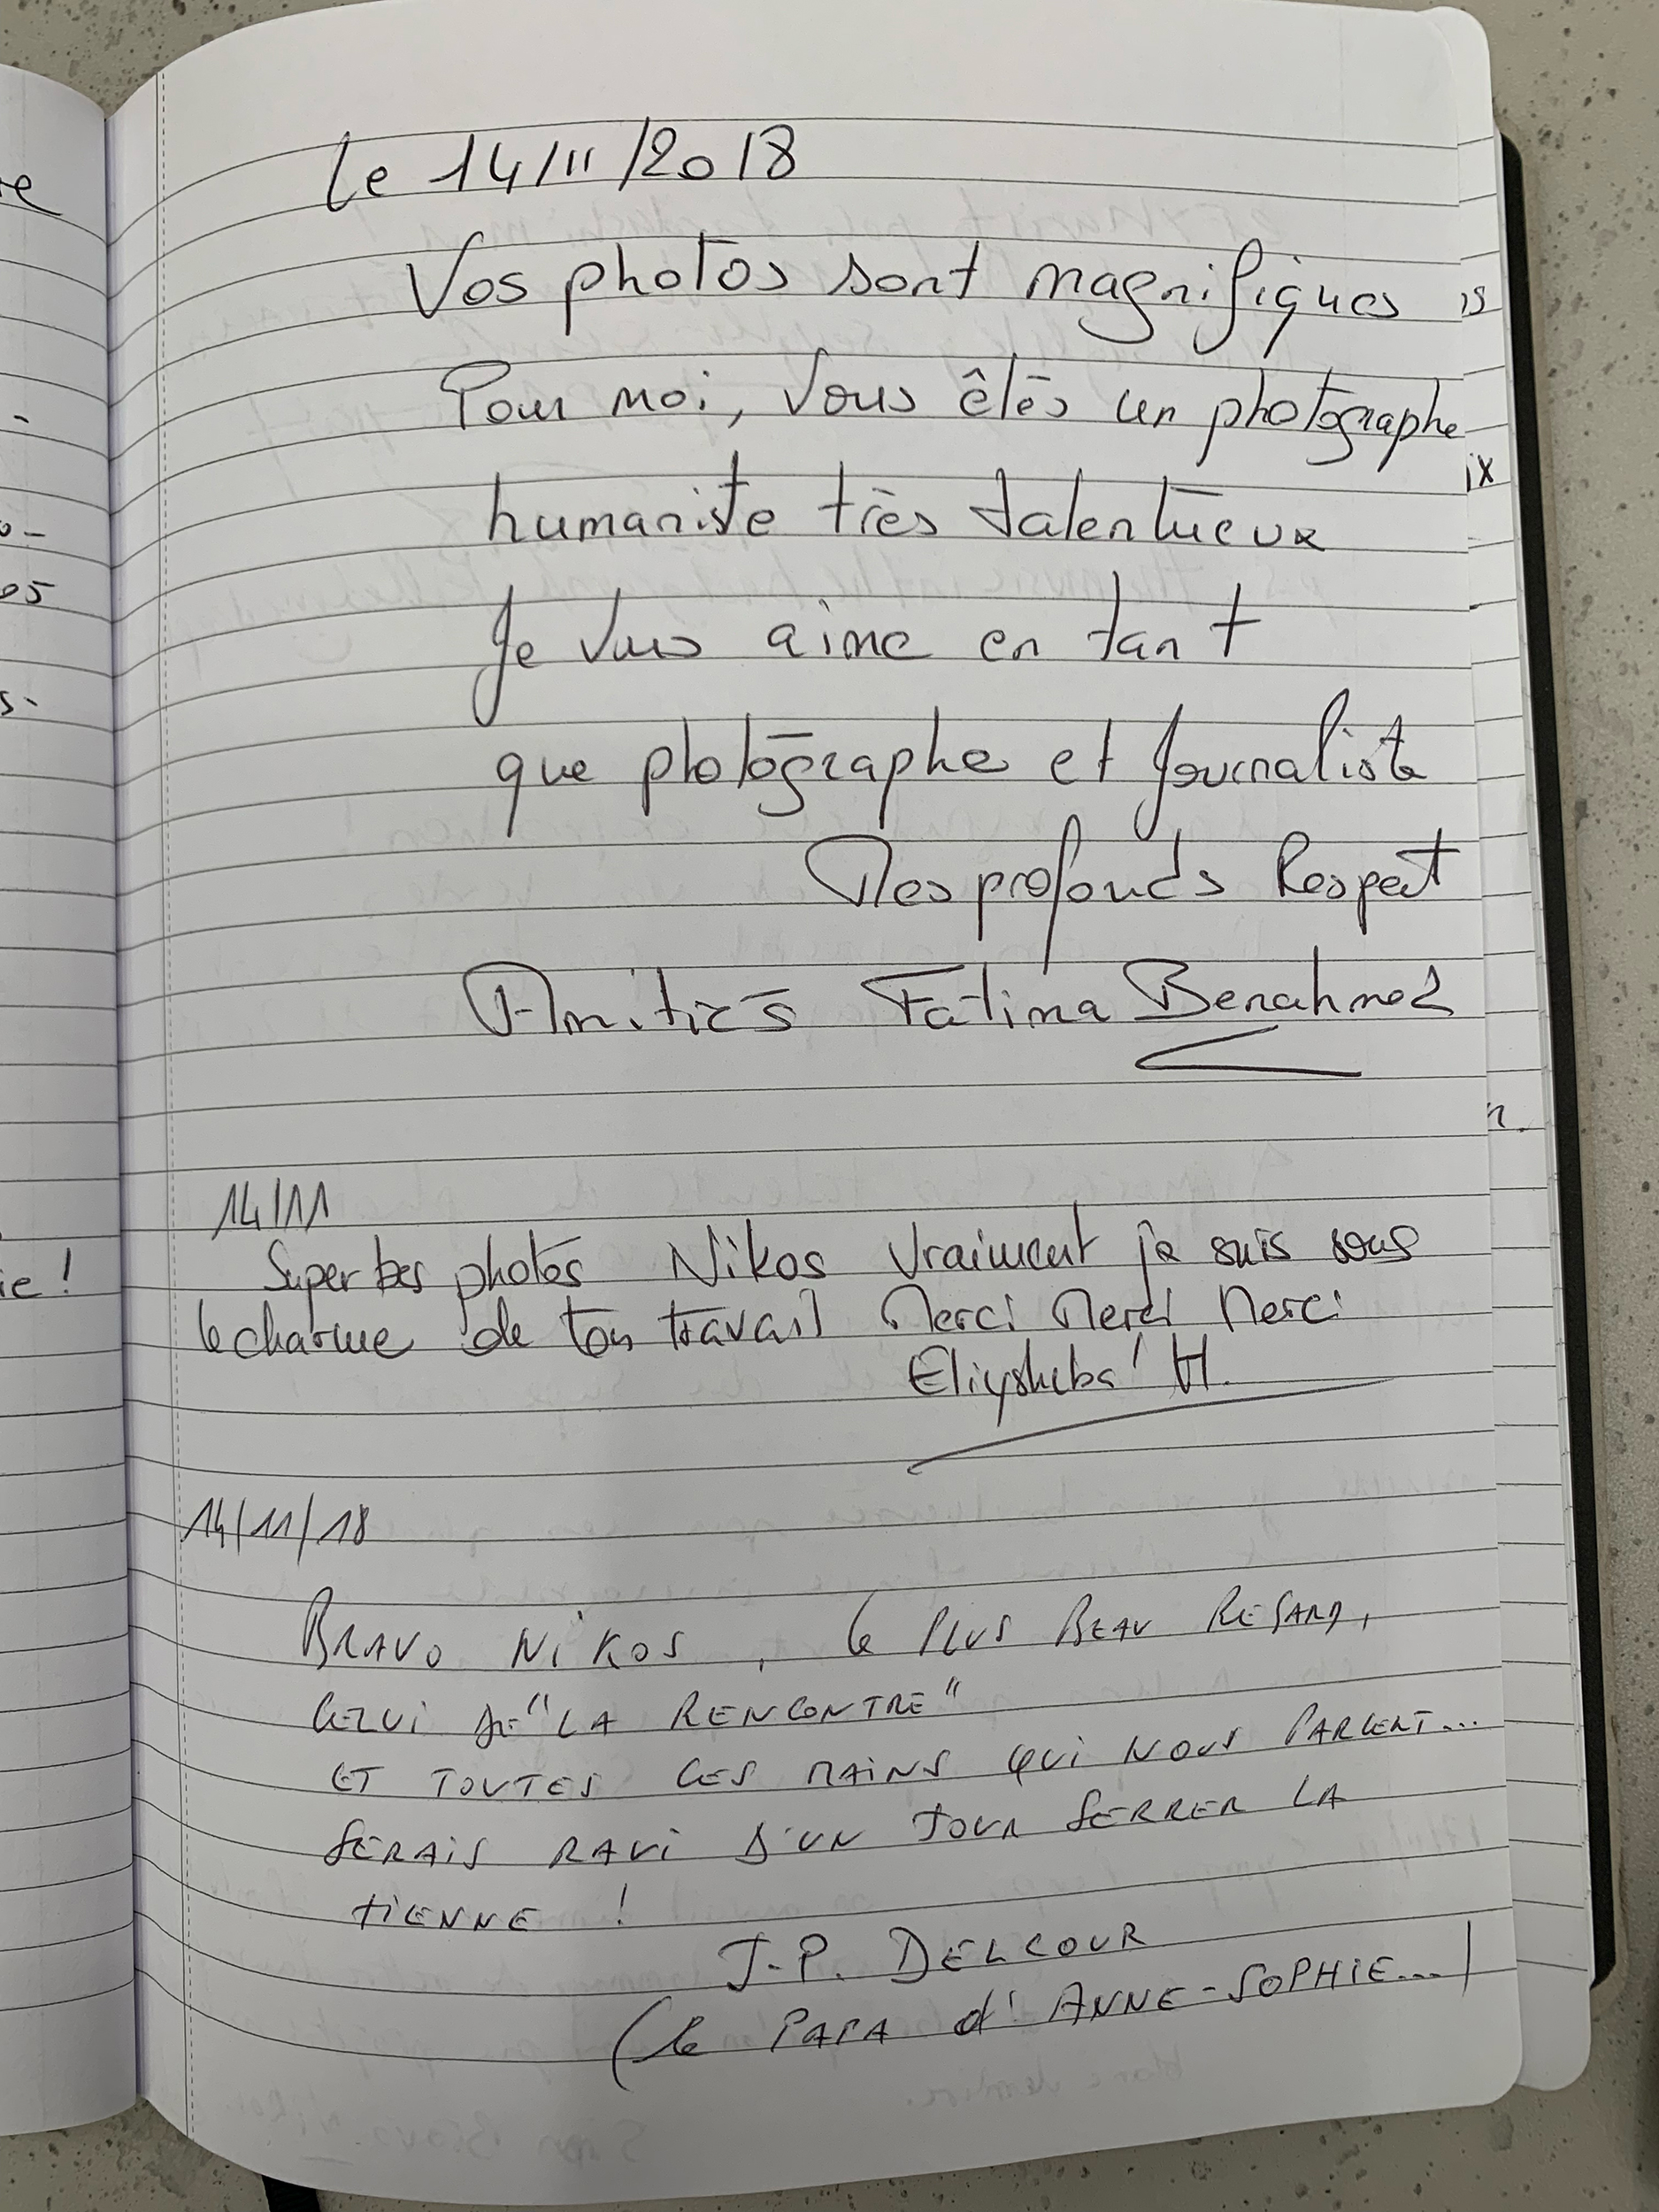 le 14/11/2018
Vos photos sont magnifiques
Pour moi, vous êtes un photographe
humaniste très talentueux
Je vous aime en tant
que photographe et journaliste
Mes profonds Respect
Amitiés Fatima Benahmed
14/11
Superbes photos Nikos vraiment je suis sous
le charme de ton travail Merci Merci Merci
Eliysheba' H.
14/11/18
BRAVO NIKOS, le PLUS BEAU REGARD,
CELUI DE "LA RENCONTRE"
ET TOUTES CES MAINS QUI NOUS PARLENT...
SERAIS RAVI D'UN JOUR SERRER LA
TIENNE !
J-P. DELCOUR
(le PAPA d'ANNE-SOPHIE...)